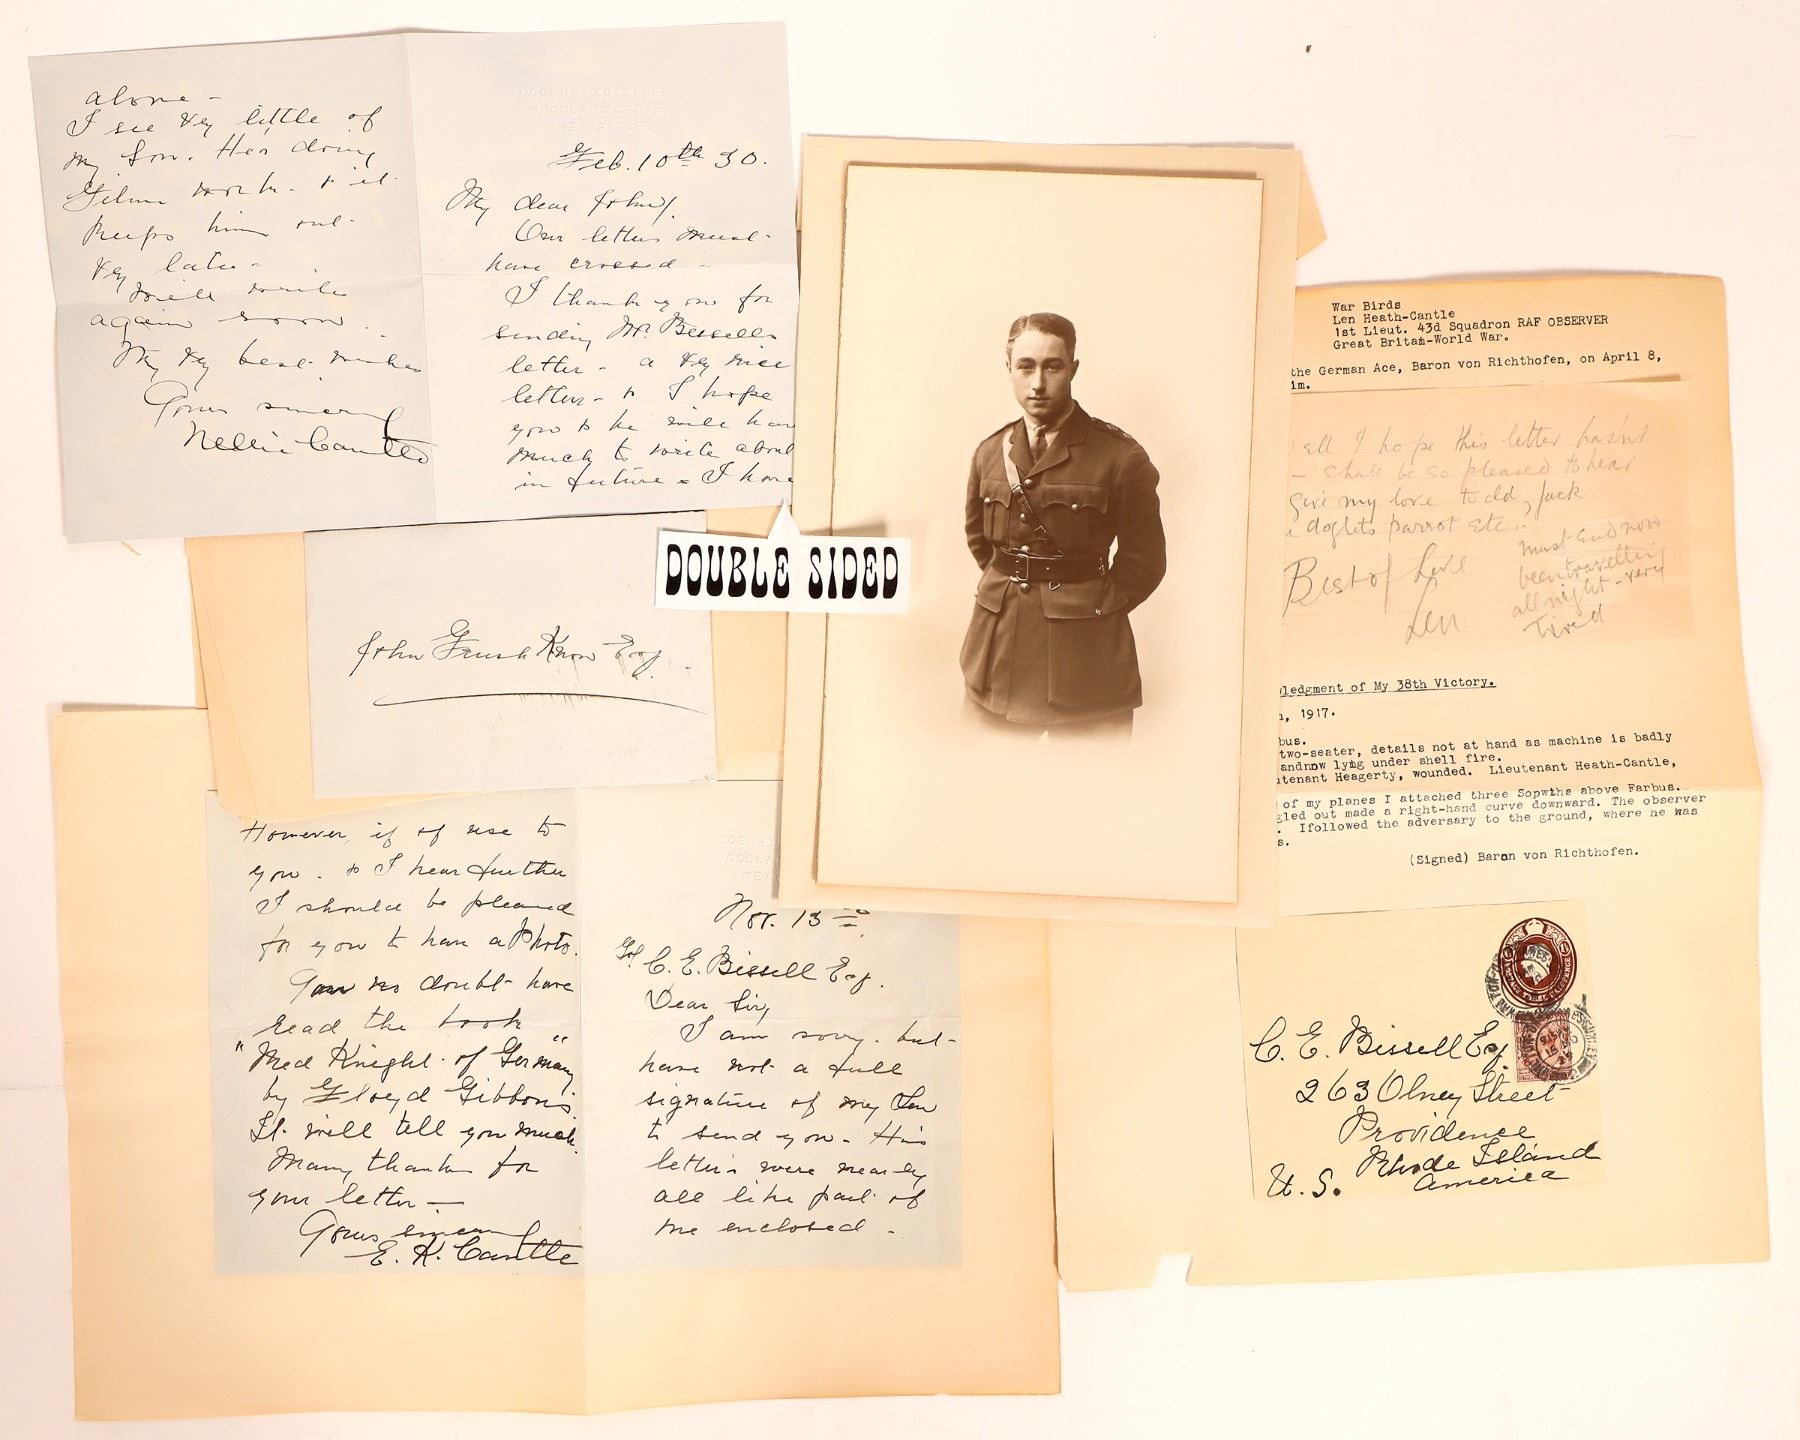 alone -
I see very little of
my son. He's doing
Film work - & it
keeps him out
very late -
will write
again soon.
My very best wishes
Yours sincerely
Nellie Cantle
WOODBURY COTTAGE,
WOODLAND GROVE,
WEYBRIDGE.
Feb. 10th 30.
My dear John,
Our letters must
have crossed -
I thank you for
sending Mr. Bissell's
letter - a very nice
letter - & I hope
you & he will have
much to write about
in future & I have
DOUBLE SIDED
John Esq.
However, if of use to
you. & I hear further
I should be pleased
for you to have a Photo.
You no doubt have
read the book
"Red Knight of Germany"
by Floyd Gibbons
It will tell you much.
Many thanks for
your letter -
Yours sincerely
E. K. Cantle
Nov. 13
To C. E. Bissell Esq.
Dear Sir,
I am sorry but
have not a full
signature of my Son
to send you - His
letters were nearly
all like part of
one enclosed -
War Birds
Len Heath-Cantle
1st Lieut. 43d Squadron RAF OBSERVER
Great Britain-World War.
the German Ace, Baron von Richthofen, on April 8,
im.
ell I hope this letter hasn't
- Shall be so pleased to hear
give my love to old Jack
doglets parrot etc..
Best of Love
Len
must end now
been travelling
all night - very
Tired
ledgment of My 38th Victory.
, 1917.
bus.
two-seater, details not at hand as machine is badly
andnow lying under shell fire.
tenant Heagerty, wounded. Lieutenant Heath-Cantle,
of my planes I attached three Sopwths above Farbus.
gled out made a right-hand curve downward. The observer
. Ifollowed the adversary to the ground, where he was
s.
(Signed) Baron von Richthofen.
C. E. Bissell Esq.
263 Olney Street
Providence
Rhode Island
U. S. America